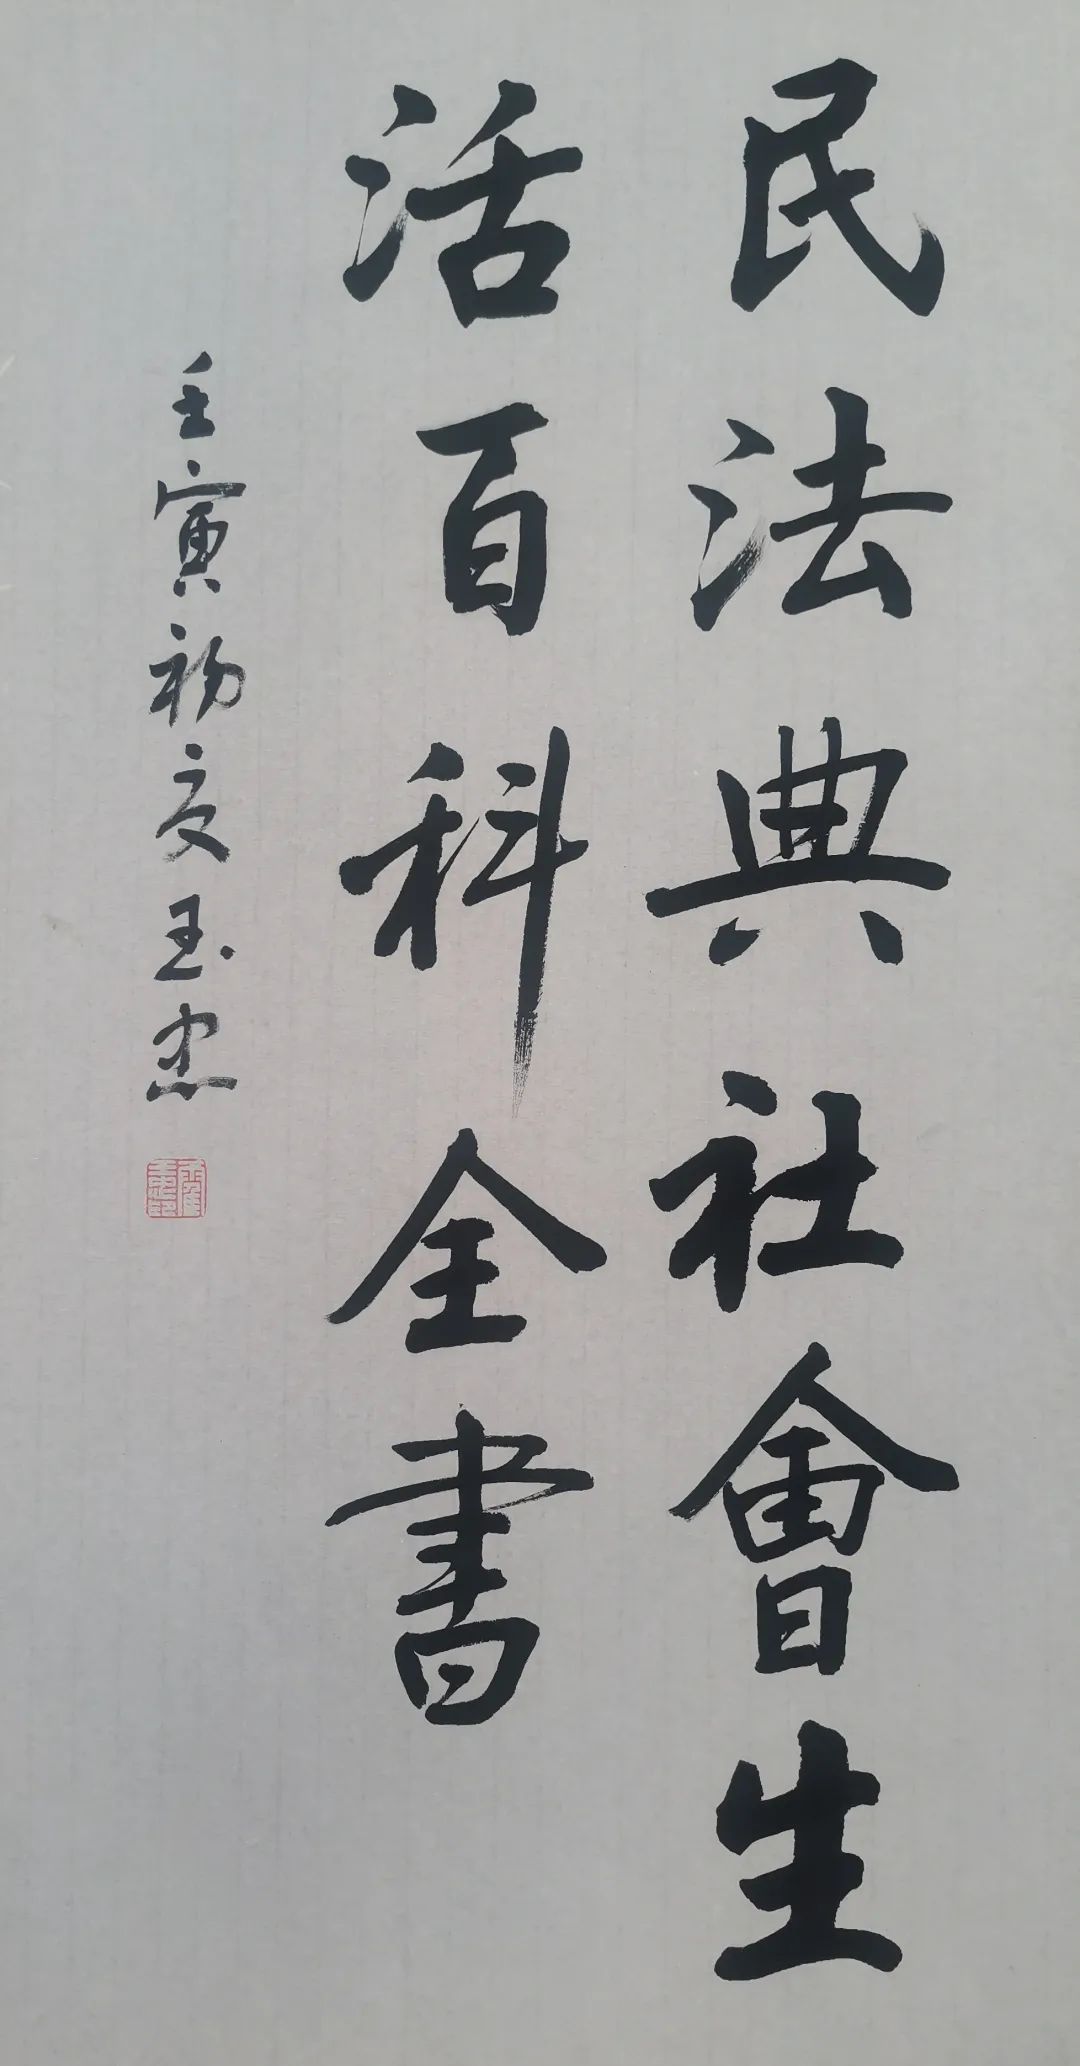 民法典社會生
活百科全書
壬寅初夏玉忠